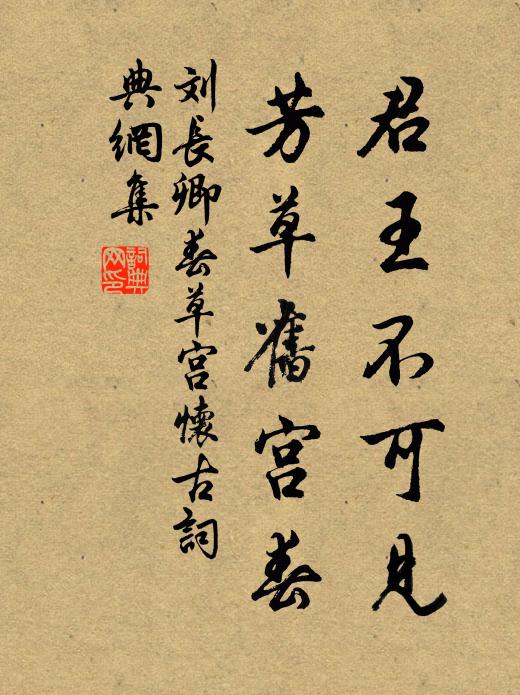 君王不可見
芳草舊宮春
刘長卿春草宮懷古詞
典網集
詞典
网印